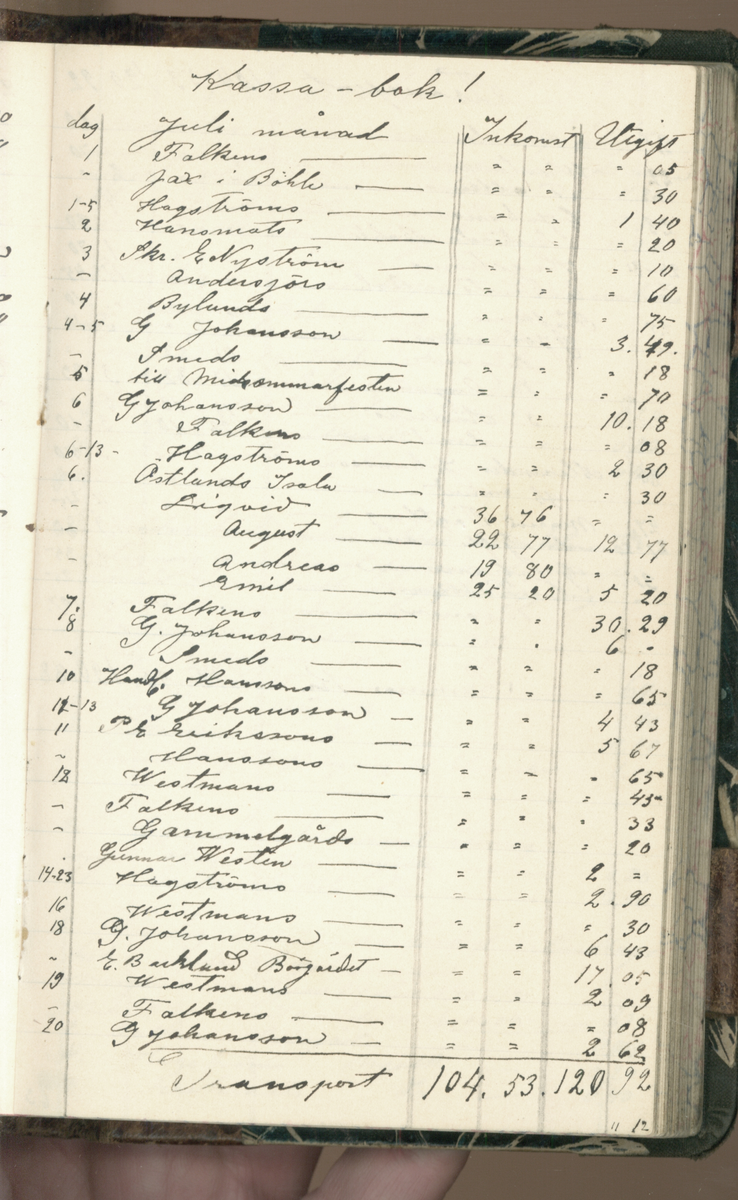 Kassa-bok!
dag Juli månad Inkomst Utgift
1 Falkens — " " " 05
" Jax i Böhle — " " " 30
1-5 Hagströms — " " 1 40
2 Hansmats — " " " 20
3 Skr. E Nyström — " " " 10
" Andersjörs " " " 60
4 Bylunds — " " " 75
4-5 G Johansson — " " 3. 49.
" Smeds — " " " 18
5 till Midsommarfesten " " " 70
6 G Johansson — " " 10. 18
" Falkens " " " 08
6-13- Hagströms — " " 2 30
6. Östlunds Isala — " " " 30
" Liqvid — 36 76 " "
" August — 22 77 12 77
" Andreas — 19 80 " "
Emil — 25 20 5 20
7. Falkens — " " 30. 29
8 G. Johansson — " " 6 "
" Smeds — " " " 18
10 Handl. Hanssons — " " " 65
12-13 G Johansson — " " 4 43
11 P E Erikssons — " " 5 67
" Hanssons — " " " 65
12 Westmans — " " " 45
" Falkens — " " " 33
" Gammelgårds — " " " 20
" Gunnar Westin — " " 2 =
14-23 Hagströms — " " 2. 90
16 Westmans — " " " 30
18 G. Johansson — " " 6 43
" E. Backlund Böögärdet — " " 17. 05
19 Westmans — " " 2 09
" Falkens — " " " 08
20 G Johansson — " " 2 62
Transport 104. 53. 120 92
" 12